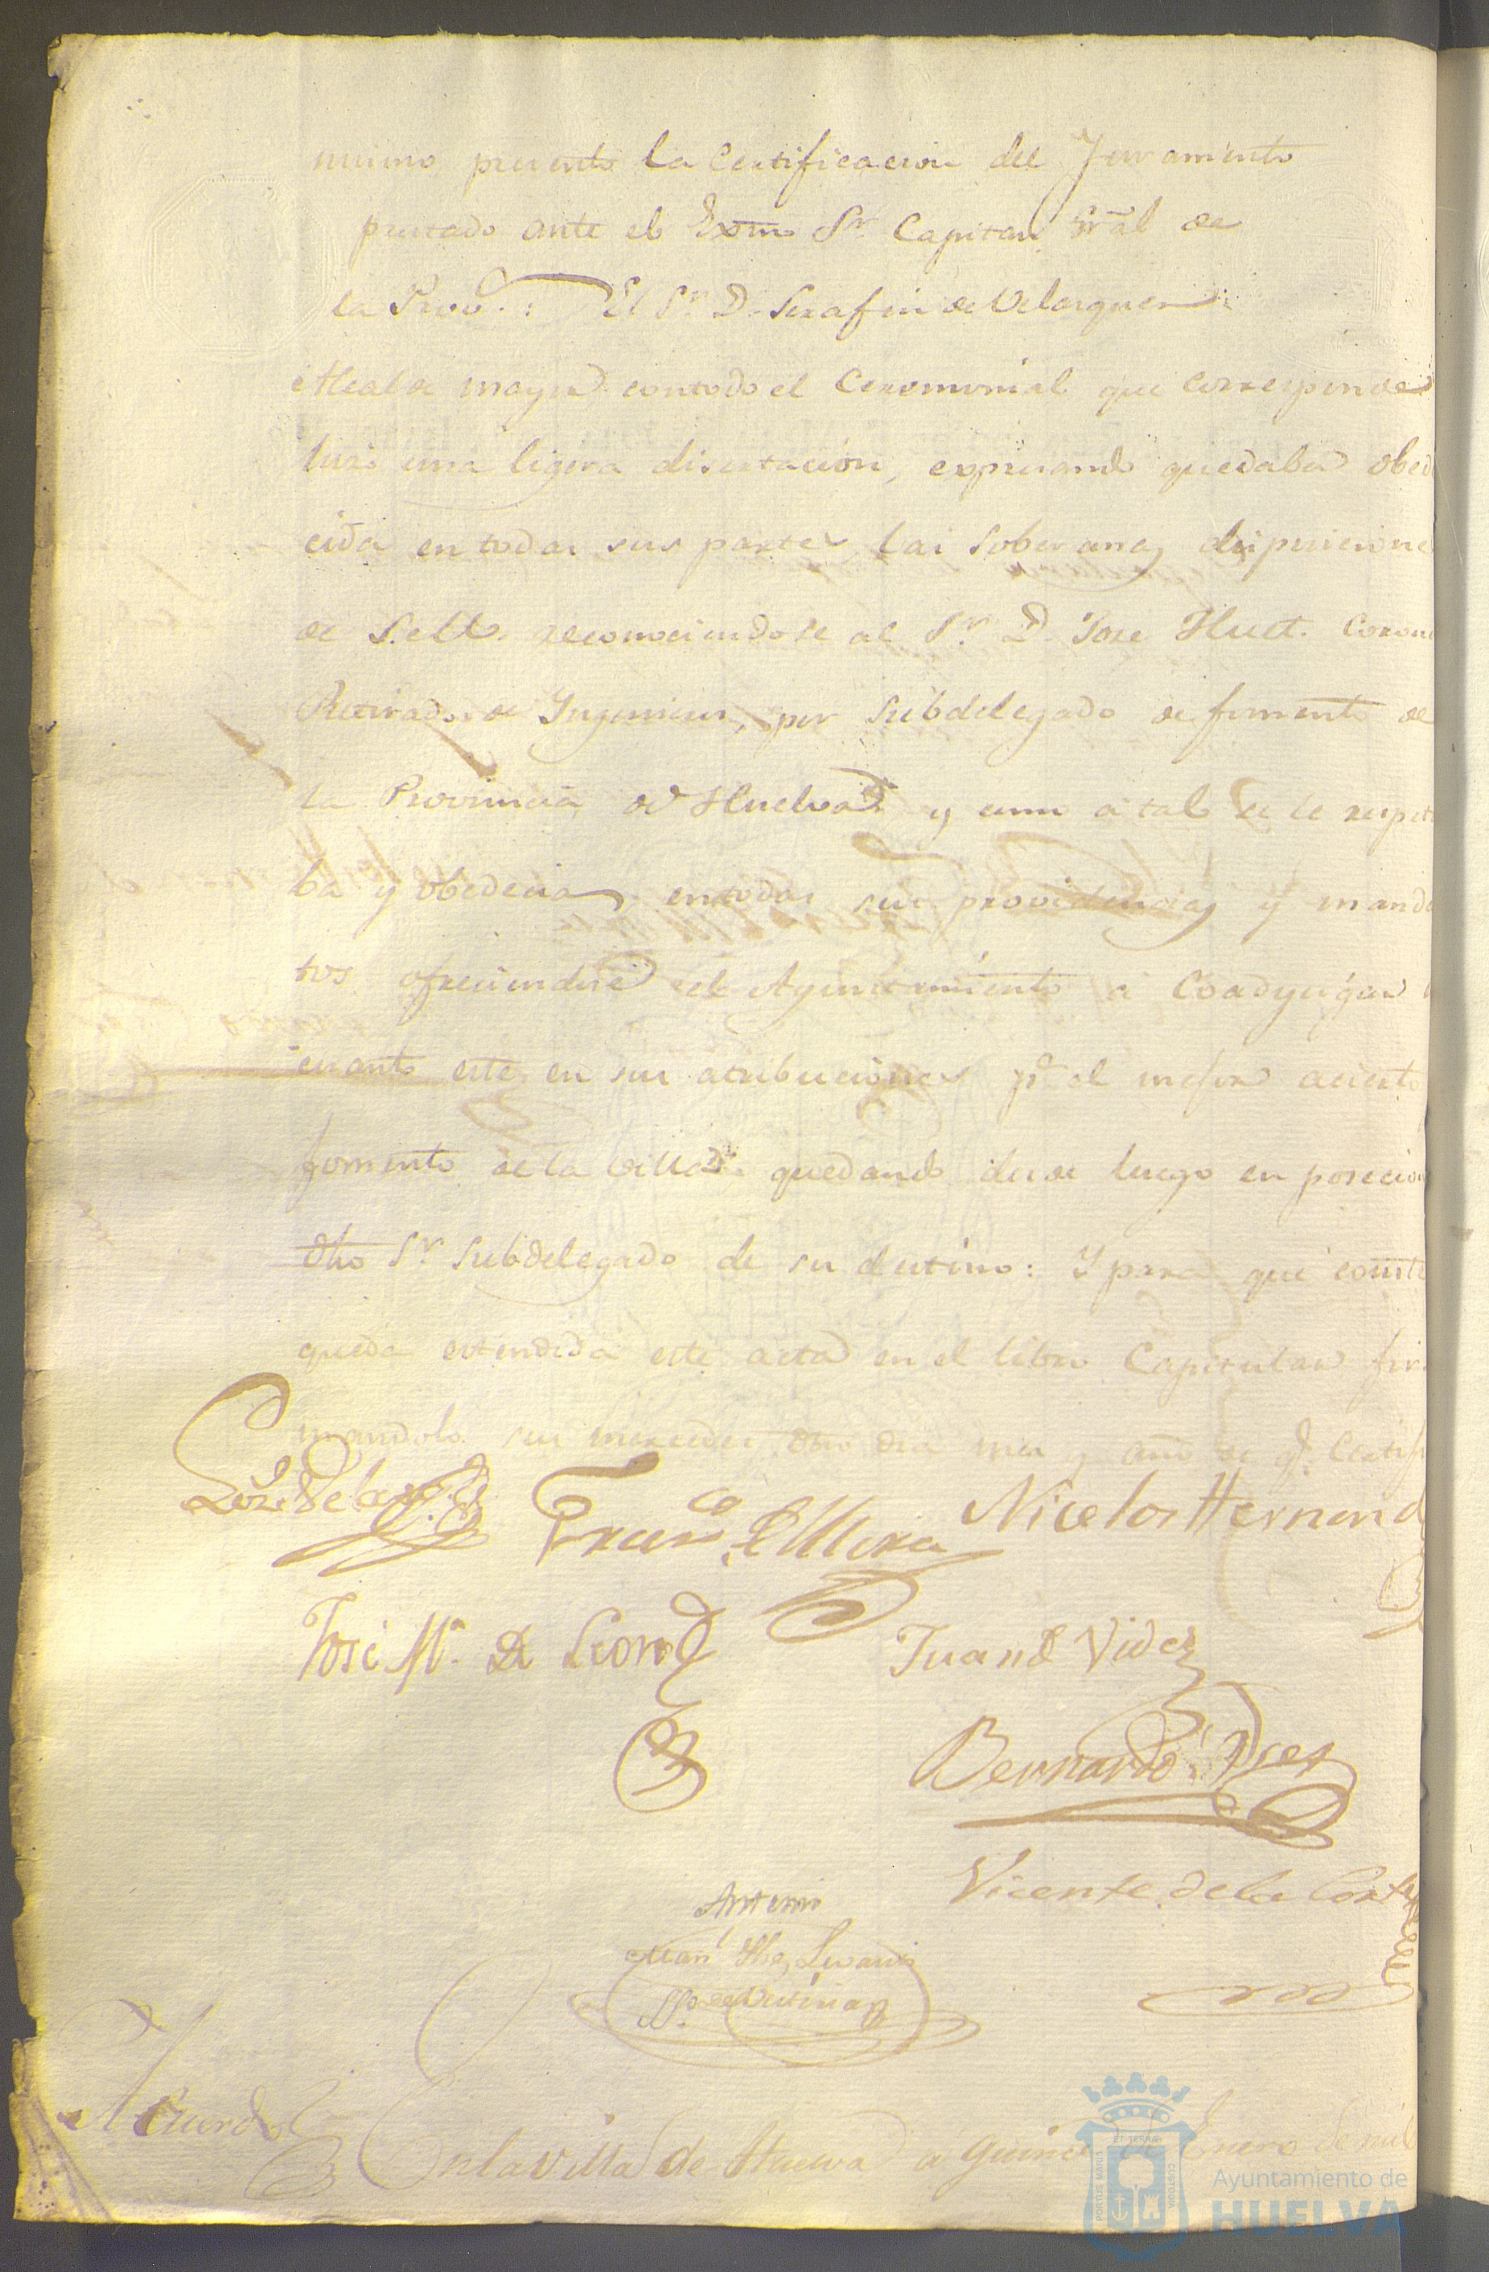 mismo, presento la Certificacion del Juramento
prestado ante el Exmo Sr. Capitan Gral de
la Prov.ª: El Sr. D. Serafin de Velasquez
Alcalde mayor con todo el Ceremonial que corresponde
hizo una ligera disertación, expresando quedaba obede
cida en todas sus partes las Soberanas disposicione
de S.M. reconociendose al Sr. D. Jose Huet. Corone
Retirado de Ingenieros, por Subdelegado de fomento de
la Provincia de Huelva y como a tal se le respeta
ba y obedecia en todas sus providencias y manda
tos ofreciendose el Ayuntamiento a Coadyugar
cuanto este en sus atribuciones pª el mejor acierto
fomento de la Villa quedando desde luego en posecion
dho Sr. Subdelegado de su destino: Y para que conste
queda estendida este acta en el libro Capitular fir
mandolo sus mercedes dho dia mes y año de q.e Certifi
Franco de Mora
Nicolas Hernand
José Mª. de Leon
Juan de Vides
Bernardo
Vicente de la Corte
Ante mi
Acuerdo
En la villa de Huelva a quince de Enero de mil
PORTUS MARIS
ET TERRAE
CUSTODIA
Ayuntamiento de
HUELVA